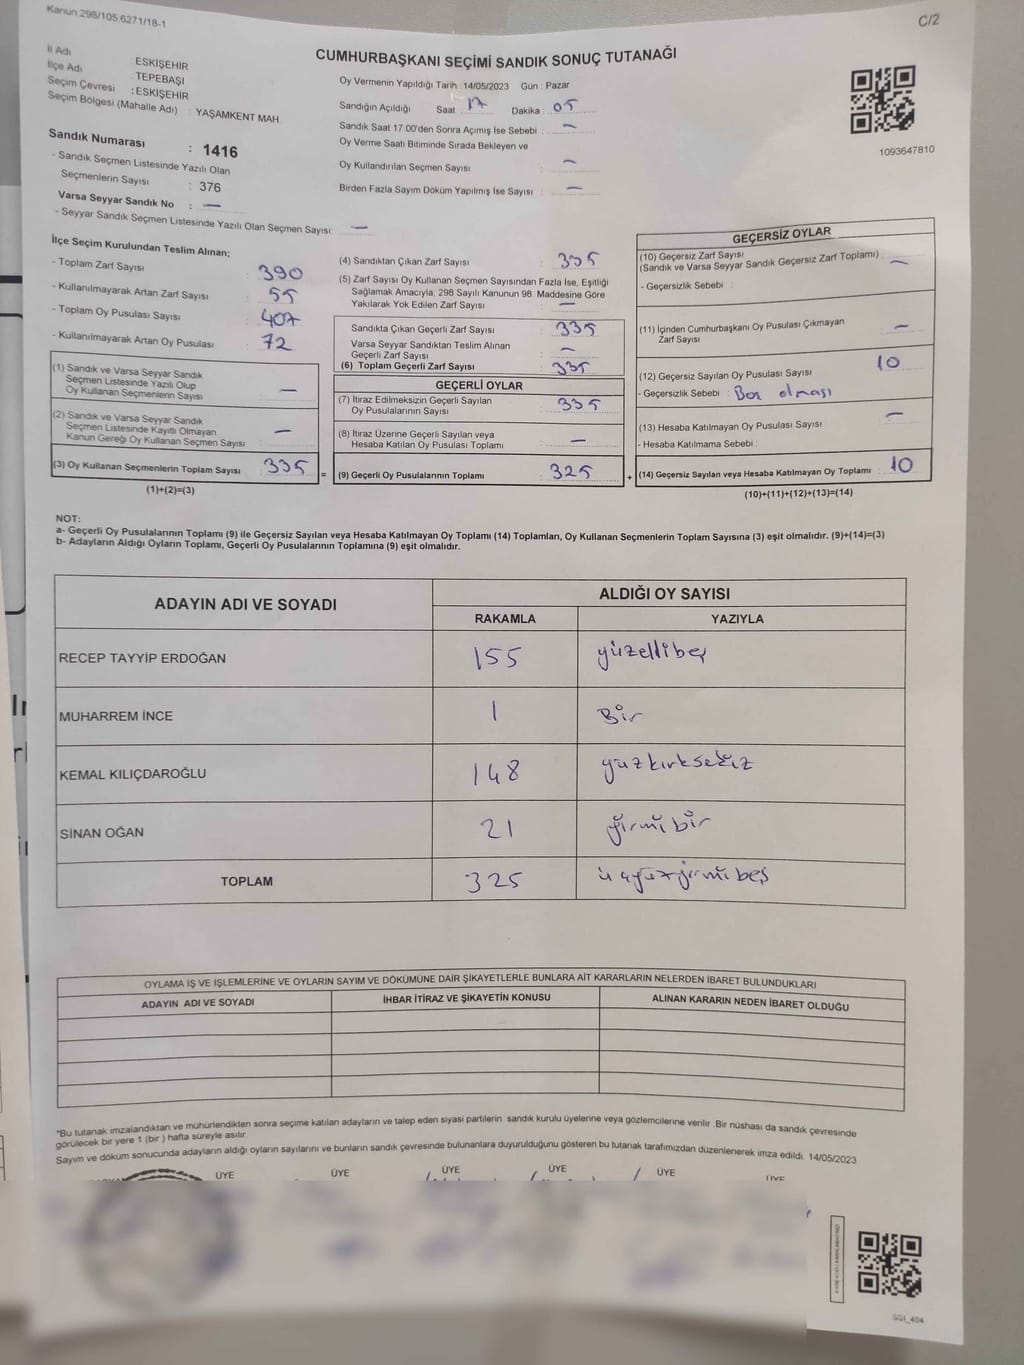 Kanun.298/105,6271/18-1
C/2
CUMHURBAŞKANI SEÇİMİ SANDIK SONUÇ TUTANAĞI
İl Adı : ESKİŞEHİR
İlçe Adı : TEPEBAŞI
Seçim Çevresi : ESKİŞEHİR
Seçim Bölgesi (Mahalle Adı) : YAŞAMKENT MAH
Sandık Numarası : 1416
- Sandık Seçmen Listesinde Yazılı Olan
Seçmenlerin Sayısı : 376
Varsa Seyyar Sandık No : —
- Seyyar Sandık Seçmen Listesinde Yazılı Olan Seçmen Sayısı: —
Oy Vermenin Yapıldığı Tarih : 14/05/2023 Gün : Pazar
Sandığın Açıldığı Saat : 17 Dakika : 05
Sandık Saat 17.00'den Sonra Açımış İse Sebebi : —
Oy Verme Saati Bitiminde Sırada Bekleyen ve
Oy Kullandırılan Seçmen Sayısı : —
Birden Fazla Sayım Döküm Yapılmış İse Sayısı : —
1093647810
İlçe Seçim Kurulundan Teslim Alınan;
- Toplam Zarf Sayısı : 390
- Kullanılmayarak Artan Zarf Sayısı : 55
- Toplam Oy Pusulası Sayısı : 407
- Kullanılmayarak Artan Oy Pusulası : 72
(1) Sandık ve Varsa Seyyar Sandık
Seçmen Listesinde Yazılı Olup
Oy Kullanan Seçmenlerin Sayısı : —
(2) Sandık ve Varsa Seyyar Sandık
Seçmen Listesinde Kayıtlı Olmayan
Kanun Gereği Oy Kullanan Seçmen Sayısı : —
(3) Oy Kullanan Seçmenlerin Toplam Sayısı : 335
(1)+(2)=(3)
(4) Sandıktan Çıkan Zarf Sayısı : 335
(5) Zarf Sayısı Oy Kullanan Seçmen Sayısından Fazla İse, Eşitliği
Sağlamak Amacıyla, 298 Sayılı Kanunun 98. Maddesine Göre
Yakılarak Yok Edilen Zarf Sayısı : —
Sandıkta Çıkan Geçerli Zarf Sayısı : 335
Varsa Seyyar Sandıktan Teslim Alınan
Geçerli Zarf Sayısı : —
(6) Toplam Geçerli Zarf Sayısı : 335
GEÇERLİ OYLAR
(7) İtiraz Edilmeksizin Geçerli Sayılan
Oy Pusulalarının Sayısı : 335
(8) İtiraz Üzerine Geçerli Sayılan veya
Hesaba Katılan Oy Pusulası Toplamı : —
(9) Geçerli Oy Pusulalarının Toplamı : 325
GEÇERSİZ OYLAR
(10) Geçersiz Zarf Sayısı
(Sandık ve Varsa Seyyar Sandık Geçersiz Zarf Toplamı) : —
- Geçersizlik Sebebi :
(11) İçinden Cumhurbaşkanı Oy Pusulası Çıkmayan
Zarf Sayısı : —
(12) Geçersiz Sayılan Oy Pusulası Sayısı : 10
- Geçersizlik Sebebi : Boş olması
(13) Hesaba Katılmayan Oy Pusulası Sayısı : —
- Hesaba Katılmama Sebebi :
(14) Geçersiz Sayılan veya Hesaba Katılmayan Oy Toplamı : 10
(10)+(11)+(12)+(13)=(14)
NOT:
a- Geçerli Oy Pusulalarının Toplamı (9) ile Geçersiz Sayılan veya Hesaba Katılmayan Oy Toplamı (14) Toplamları, Oy Kullanan Seçmenlerin Toplam Sayısına (3) eşit olmalıdır. (9)+(14)=(3)
b- Adayların Aldığı Oyların Toplamı, Geçerli Oy Pusulalarının Toplamına (9) eşit olmalıdır.
ADAYIN ADI VE SOYADI
ALDIĞI OY SAYISI
RAKAMLA YAZIYLA
RECEP TAYYİP ERDOĞAN 155 yüzellibeş
MUHARREM İNCE 1 Bir
KEMAL KILIÇDAROĞLU 148 yüzkırksekiz
SİNAN OĞAN 21 yirmibir
TOPLAM 325 üçyüzyirmibeş
OYLAMA İŞ VE İŞLEMLERİNE VE OYLARIN SAYIM VE DÖKÜMÜNE DAİR ŞİKAYETLERLE BUNLARA AİT KARARLARIN NELERDEN İBARET BULUNDUKLARI
ADAYIN ADI VE SOYADI İHBAR İTİRAZ VE ŞİKAYETİN KONUSU ALINAN KARARIN NEDEN İBARET OLDUĞU
*Bu tutanak imzalandıktan ve mühürlendikten sonra seçime katılan adayların ve talep eden siyasi partilerin sandık kurulu üyelerine veya gözlemcilerine verilir. Bir nüshası da sandık çevresinde
görülecek bir yere 1 (bir ) hafta süreyle asılır.
Sayım ve döküm sonucunda adayların aldığı oyların sayılarını ve bunların sandık çevresinde bulunanlara duyurulduğunu gösteren bu tutanak tarafımızdan düzenlenerek imza edildi. 14/05/2023
ÜYE ÜYE ÜYE ÜYE ÜYE ÜYE
SSI_404